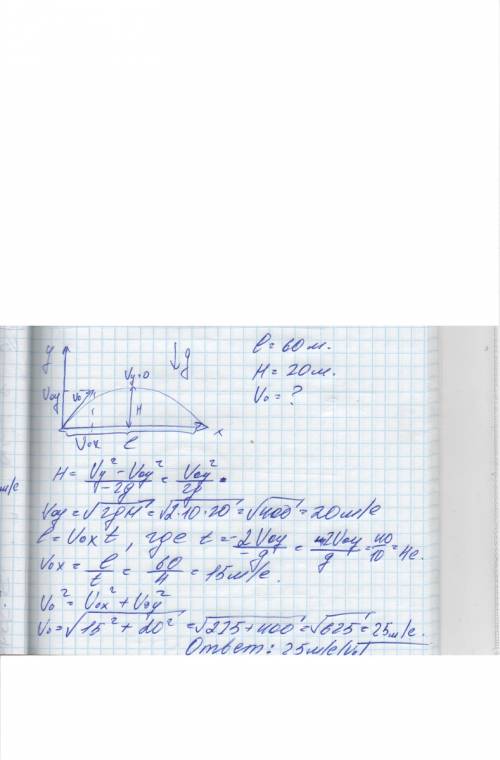 y
g
l = 60 м.
Vy=0
H = 20 м.
Voy Vo H
Vo = ?
x
Vox l
м/с
H = (Vy² - Voy²)/(-2g) = Voy²/2g
Voy = √2gH = √2·10·20 = √400 = 20 м/с
l = Vox t, где t = -2Voy/-g = 2Voy/g = 40/10 = 4с.
Vox = l/t = 60/4 = 15 м/с.
Vo² = Vox² + Voy²
Vo = √15² + 20² = √225 + 400 = √625 = 25 м/с.
Ответ: 25 м/с